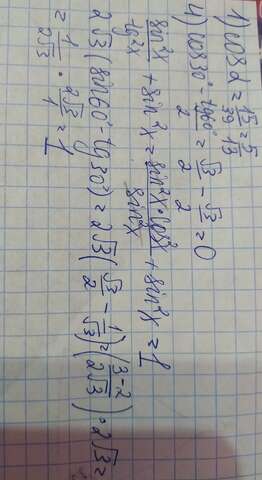 1) cos α = 15/39 = 5/13
4) cos30° - tg60°/2 = √3/2 - √3/2 = 0
sin²x/tg²x + sin²x = sin²x·cos²x/sin²x + sin²x = 1
2√3(sin60° - tg30°) = 2√3(√3/2 - 1/√3) = (3-2/2√3)·2√3 =
= 1/2√3 · 2√3/1 = 1